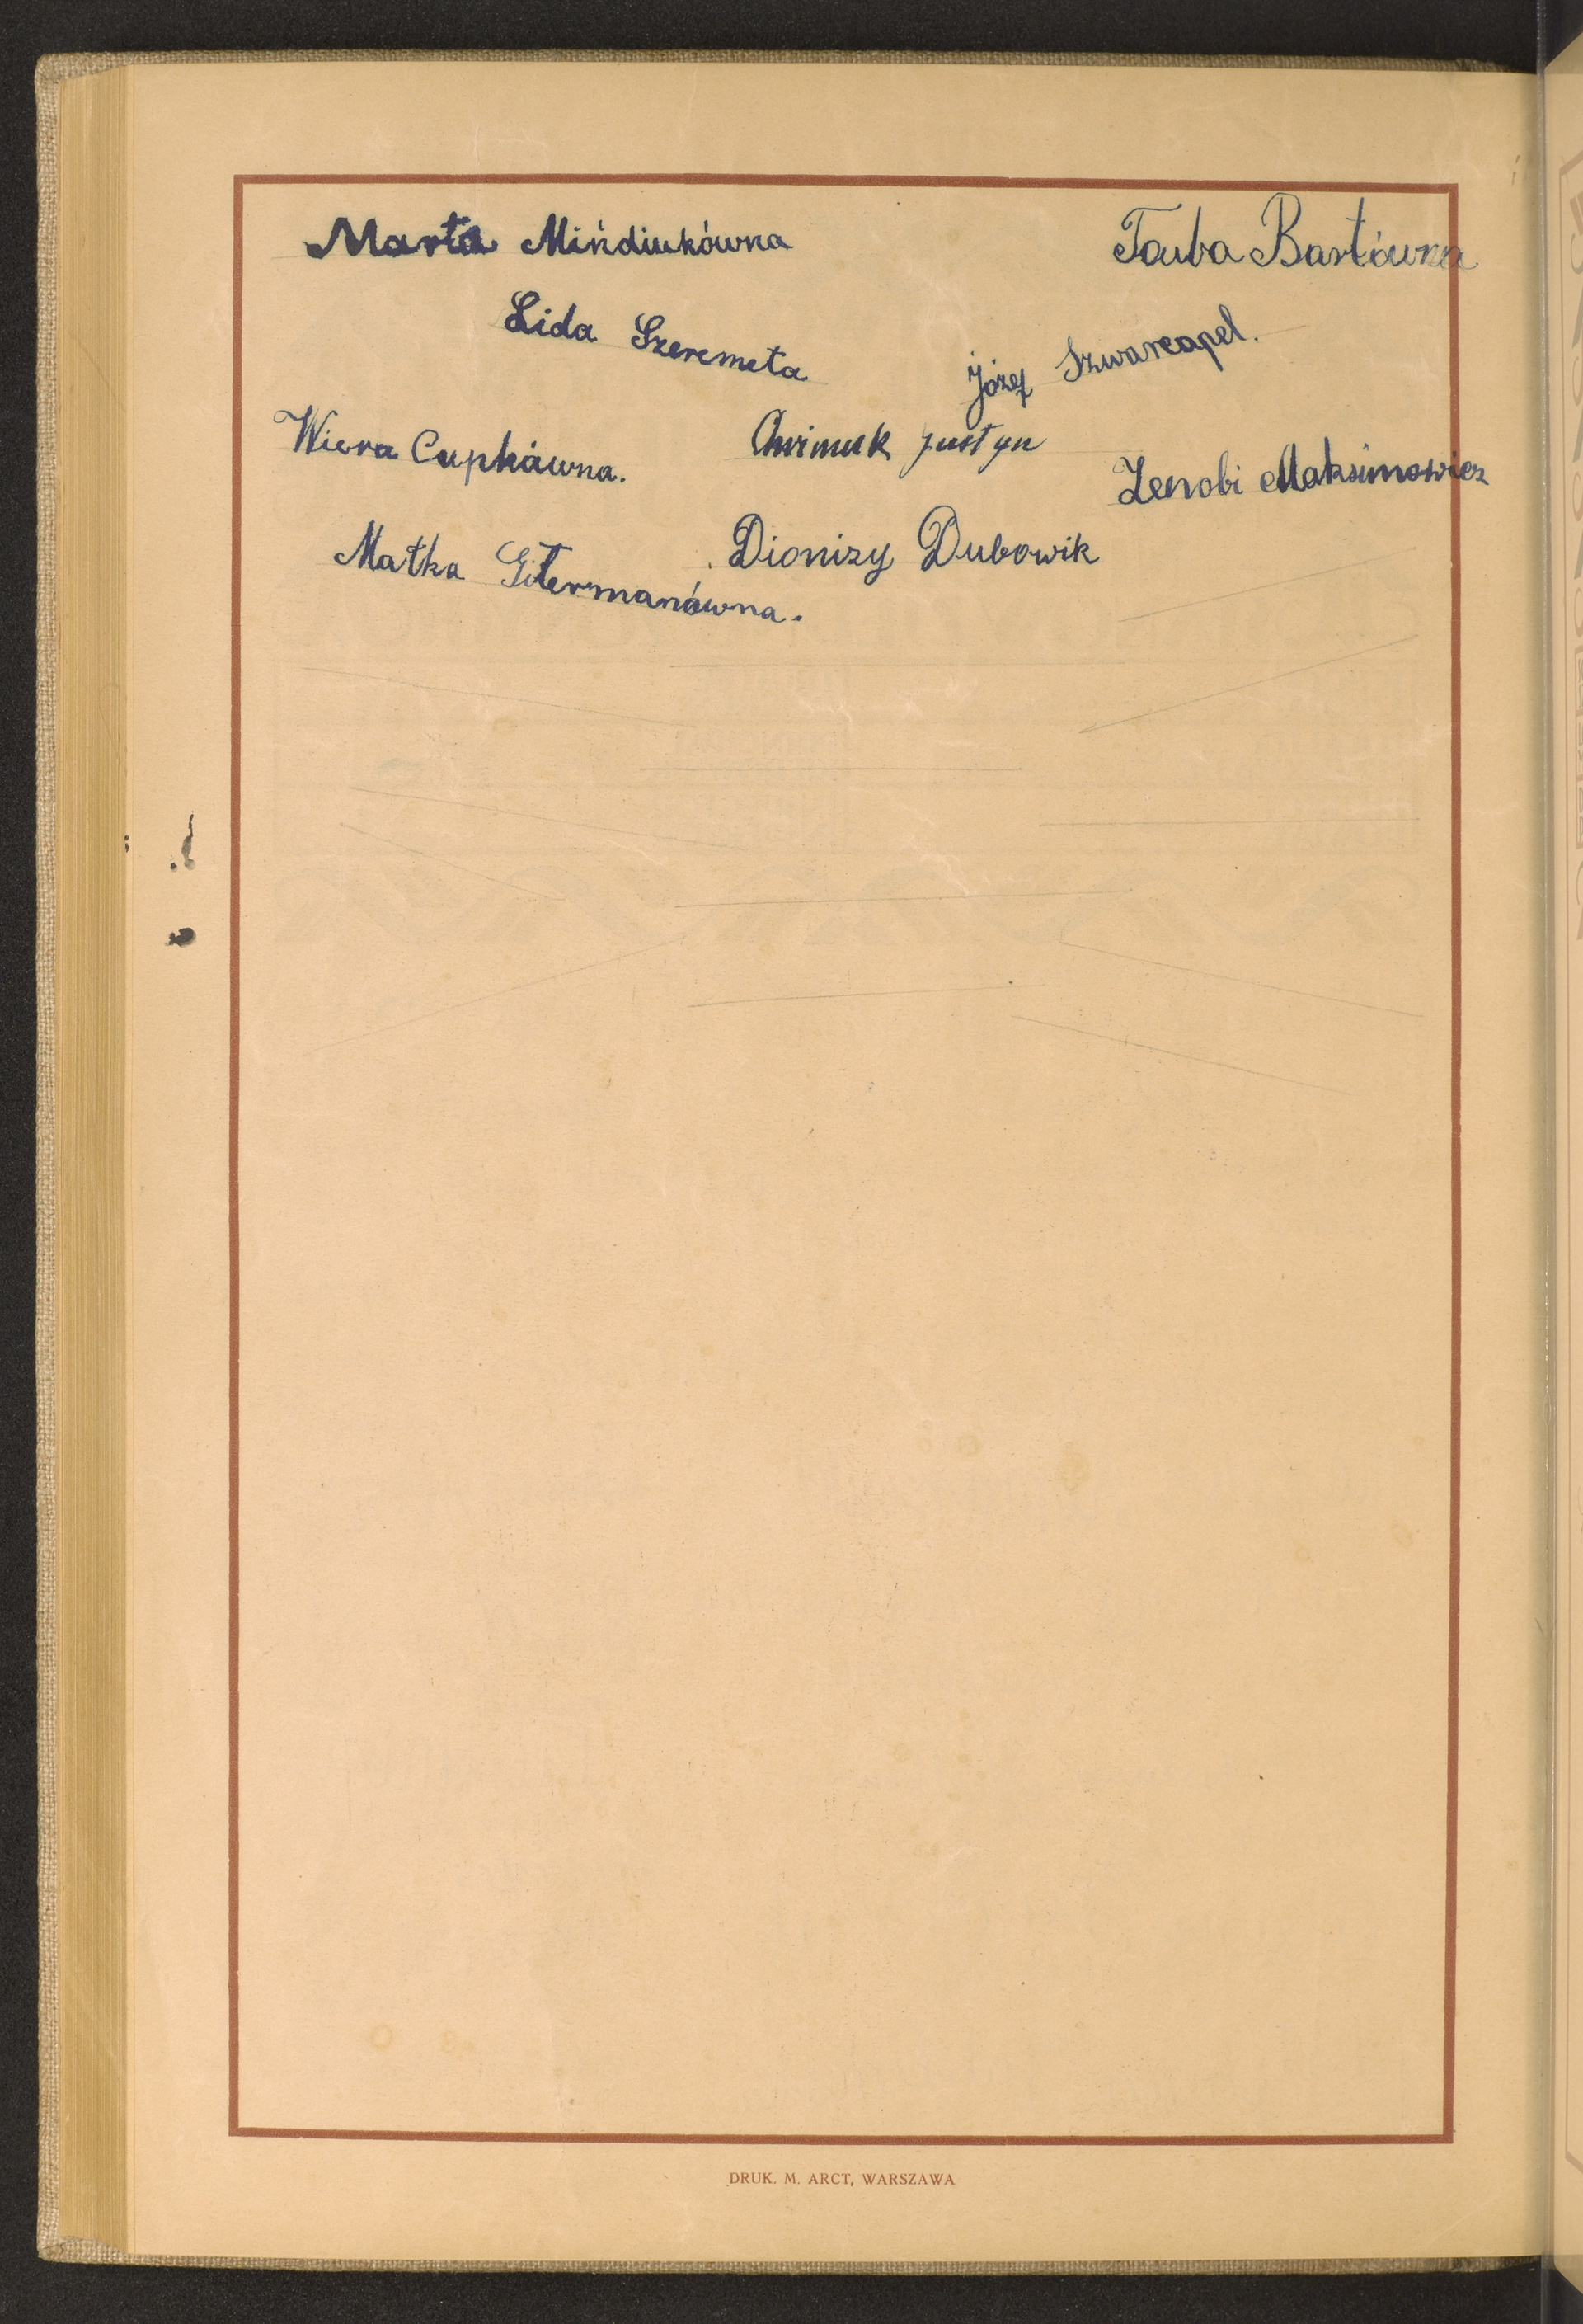 Marta Mińdiukówna
Tauba Bartówna
Lida Szeremeta
Józef Szwarcapel.
Wiera Cupkówna.
Chwimuk Justyn
Zenobi Maksimowicz
Matka Gitermanówna.
Dionizy Dubowik
DRUK. M. ARCT, WARSZAWA